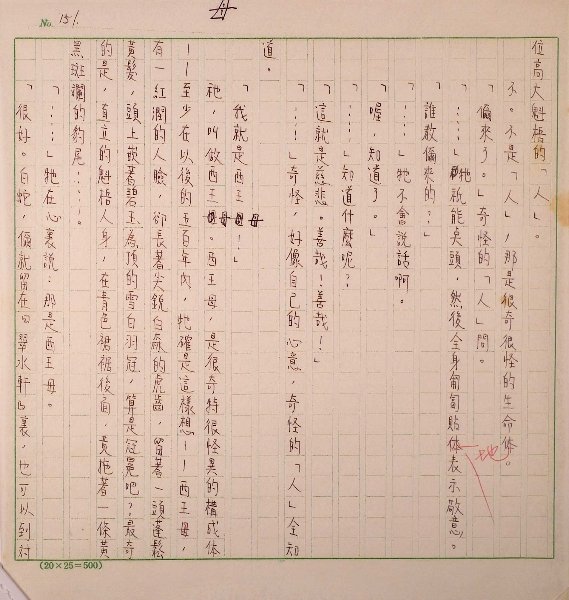 No. 151.
位高大魁梧的「人」。
不。不是「人」,那是很奇很怪的生命体。
「儞來了。」奇怪的「人」問。
「⋯⋯」牠就能臭頭,然後全身匍匐貼体表示敬意。
地
誰敢儞來的?」
「⋯⋯」牠不會說話啊。
「喔,知道了。」
「⋯⋯」知道什麼呢?
這就是慈悲。善哉!善哉!」
「⋯⋯」奇怪,好像自己的心意,奇怪的「人」全知
道。
「我就是西王母⋯」
母
祂,叫做西王母。西王母,是很奇特很怪異的構成体
——至少在以後的五百年內,牠確是這樣想——西王母,
有一紅潤的人臉,卻長著尖銳白森的虎齒,留著一頭蓬鬆
黃髮,頭上嵌著碧玉為頂的雪白羽冠,算是冠冕吧?最奇
的是,直立的魁梧人身,在青色裙裾後面,竟拖著一條黃
黑斑斕的豹尾⋯⋯。
「⋯⋯」牠在心裏說:那是西王母。
「很好。白蛇,儞就留在『翠水軒』裏,也可以到対
(20×25=500)